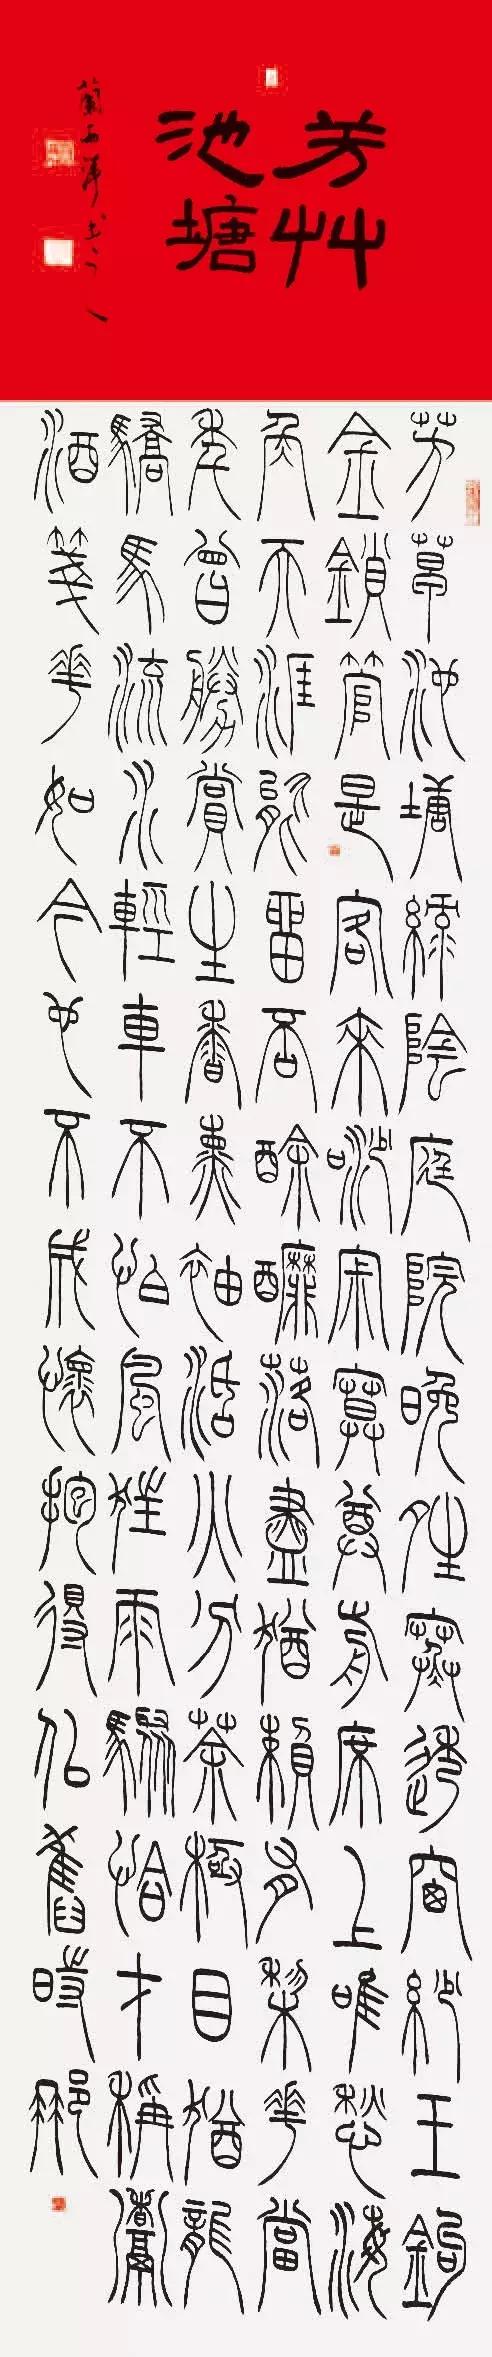 芳艸
池塘
芳草池塘綠陰庭院晚晴寒透窗紗玉鉤
金鎖管是客來唦寂寞尊前席上唯愁海
角天涯能留否酴釄落盡猶賴有梨花當
年曾勝賞生香熏袖活火分茶極目猶龍
驕馬流水輕車不怕風狂雨驟恰才稱煮
酒箋花如今也不成懷抱得佀舊時那